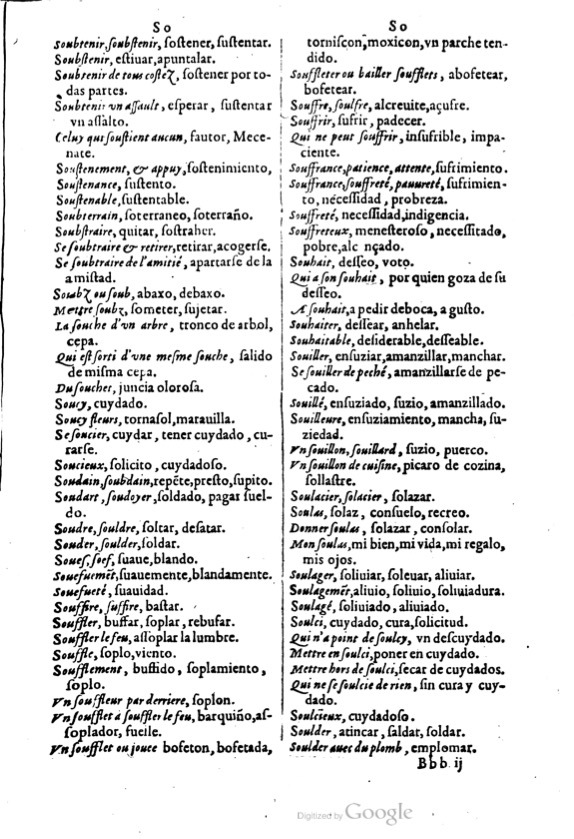 So
Soubtenir, soubstenir, sostener, sustentar.
Soubstenir, estiuar, apuntalar.
Soubtenir de tous costez, sostener por to-
das partes.
Soubtenir vn assault, esperar, sustentar
vn assalto.
Celuy qui soustient aucun, fautor, Mece-
nate.
Soustenement, & appuy, sostenimiento,
Soustenance, sustento.
Soustenable, sustentable.
Soubterrain, soterraneo, soterraño.
Soubstraire, quitar, sostraher.
Se soubtraire & retirer, retirar, acogerse.
Se soubtraire de l'amitié, apartarse de la
amistad.
Soubz ou soub, abaxo, debaxo.
Mettre soubz, someter, sujetar.
La souche d'vn arbre, tronco de arbol,
cepa.
Qui est sorti d'vne mesme souche, salido
de misma cepa.
Du souchet, juncia olorosa.
Soucy, cuydado.
Soucy fleurs, tornasol, marauilla.
Se soucier, cuydar, tener cuydado, cu-
rarse.
Soucieux, solicito, cuydadoso.
Soudain, soubdain, repẽte, presto, supito.
Soudart, soudoyer, soldado, pagar suel-
do.
Soudre, souldre, soltar, desatar.
Souder, soulder, soldar.
Souef, soef, suaue, blando.
Souefuemẽt, suauemente, blandamente.
Souefueté, suauidad.
Souffire, suffire, bastar.
Souffler, buffar, soplar, rebufar.
Souffler le feu, assoplar la lumbre.
Souffle, soplo, viento.
Soufflement, bussido, soplamiento,
soplo.
Vn souffleur par derriere, soplon.
Vn soufflet à souffler le feu, barquiño, as-
soplador, fuelle.
Vn soufflet ou jouee bofeton, bofetada,
So
torniscon, moxicon, vn parche ten-
dido.
Souffleter ou bailler soufflets, abofetear,
bofetear.
Souffre, soulfre, alcreuite, açufre.
Souffrir, sufrir, padecer.
Qui ne peut souffrir, insufrible, impa-
ciente.
Souffrance, patience, attente, sufrimiento.
Souffrance, souffreté, pauureté, sufrimien-
to, necessidad, probreza.
Souffreté, necessidad, indigencia.
Souffreteux, menesteroso, necessitado,
pobre, alc nçado.
Souhait, desseo, voto.
Qui a son souhait, por quien goza de su
desseo.
A souhait, a pedir deboca, a gusto.
Souhaiter, dessear, anhelar.
Souhaitable, desiderable, desseable.
Souiller, ensuziar, amanzillar, manchar.
Se souiller de peché, amanzillarse de pe-
cado.
Souillé, ensuziado, suzio, amanzillado.
Souilleure, ensuziamiento, mancha, su-
ziedad.
Vn souillon, souillard, suzio, puerco.
Vn souillon de cuisine, picaro de cozina,
sollastre.
Soulacier, solacier, solazar.
Soulas, solaz, consuelo, recreo.
Donner soulas, solazar, consolar.
Mon soulas, mi bien, mi vida, mi regalo,
mis ojos.
Soulager, soliuiar, soleuar, aliuiar.
Soulagemẽt, aliuio, soliuio, soliuiadura.
Soulagé, soliuiado, aliuiado.
Soulci, cuydado, cura, solicitud.
Qui n'a point de soulcy, vn descuydado.
Mettre en soulci, poner en cuydado.
Mettre hors de soulci, secar de cuydados.
Qui ne se soulcie de rien, sin cura y cuy-
dado.
Soulcieux, cuydadoso.
Soulder, atincar, saldar, soldar.
Soulder auec du plomb, emplomar.
Bbb ij
Digitized by Google